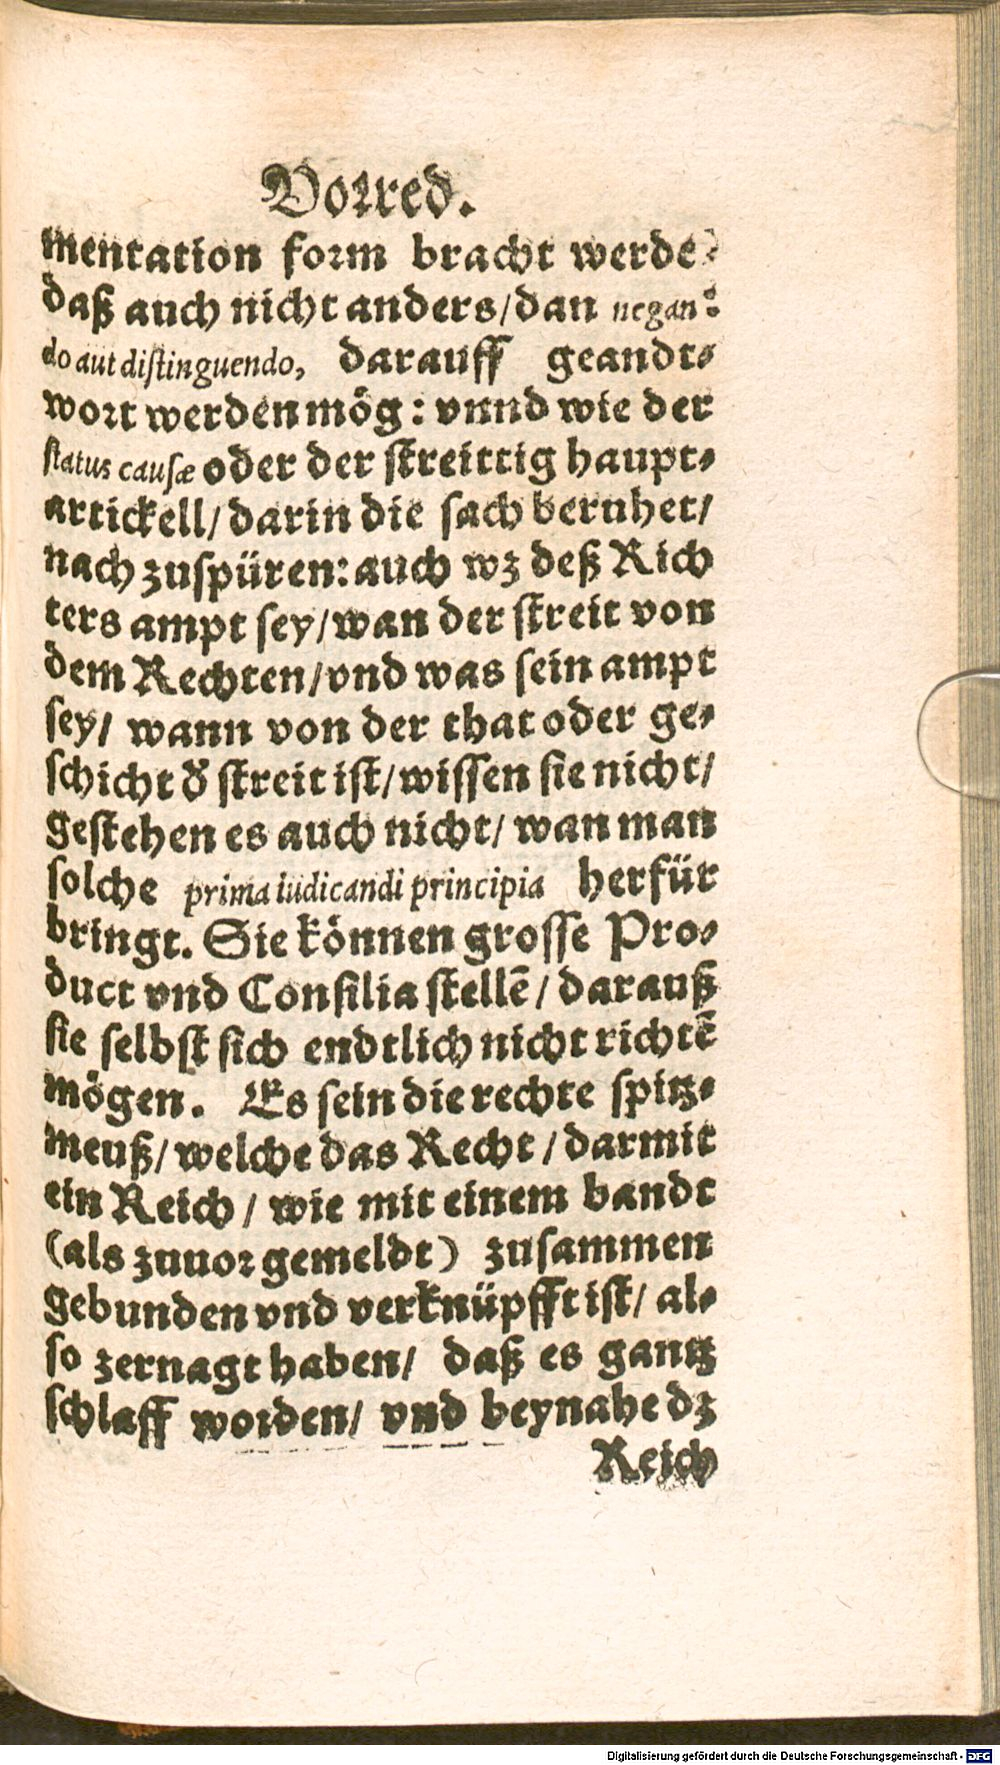 Vorred.
mentation form bracht werde?
daß auch nicht anders/dan negan⸗
do aut distinguendo, darauff geandt⸗
wort werden mög: vnnd wie der
status causæ oder der streittig haupt⸗
artickell/darin die sach beruhet/
nach zuspüren: auch wz deß Rich
ters ampt sey/wan der streit von
dem Rechten/vnd was sein ampt
sey/ wann von der that oder ge⸗
schicht d̕ streit ist/wissen sie nicht/
gestehen es auch nicht/ wan man
solche prima iudicandi principia herfür
bringt. Sie können grosse Pro⸗
duct vnd Consilia stellē/darauß
sie selbst sich endtlich nicht richtē
mögen. Es sein die rechte spitz⸗
meuß/welche das Recht/darmit
ein Reich/ wie mit einem bandt
(als zuuor gemeldt) zusammen
gebunden vnd verknüpfft ist/ al⸗
so zernagt haben/ daß es gantz
schlaff worden/ vnd beynahe dz
Reich
Digitalisierung gefördert durch die Deutsche Forschungsgemeinschaft - DFG